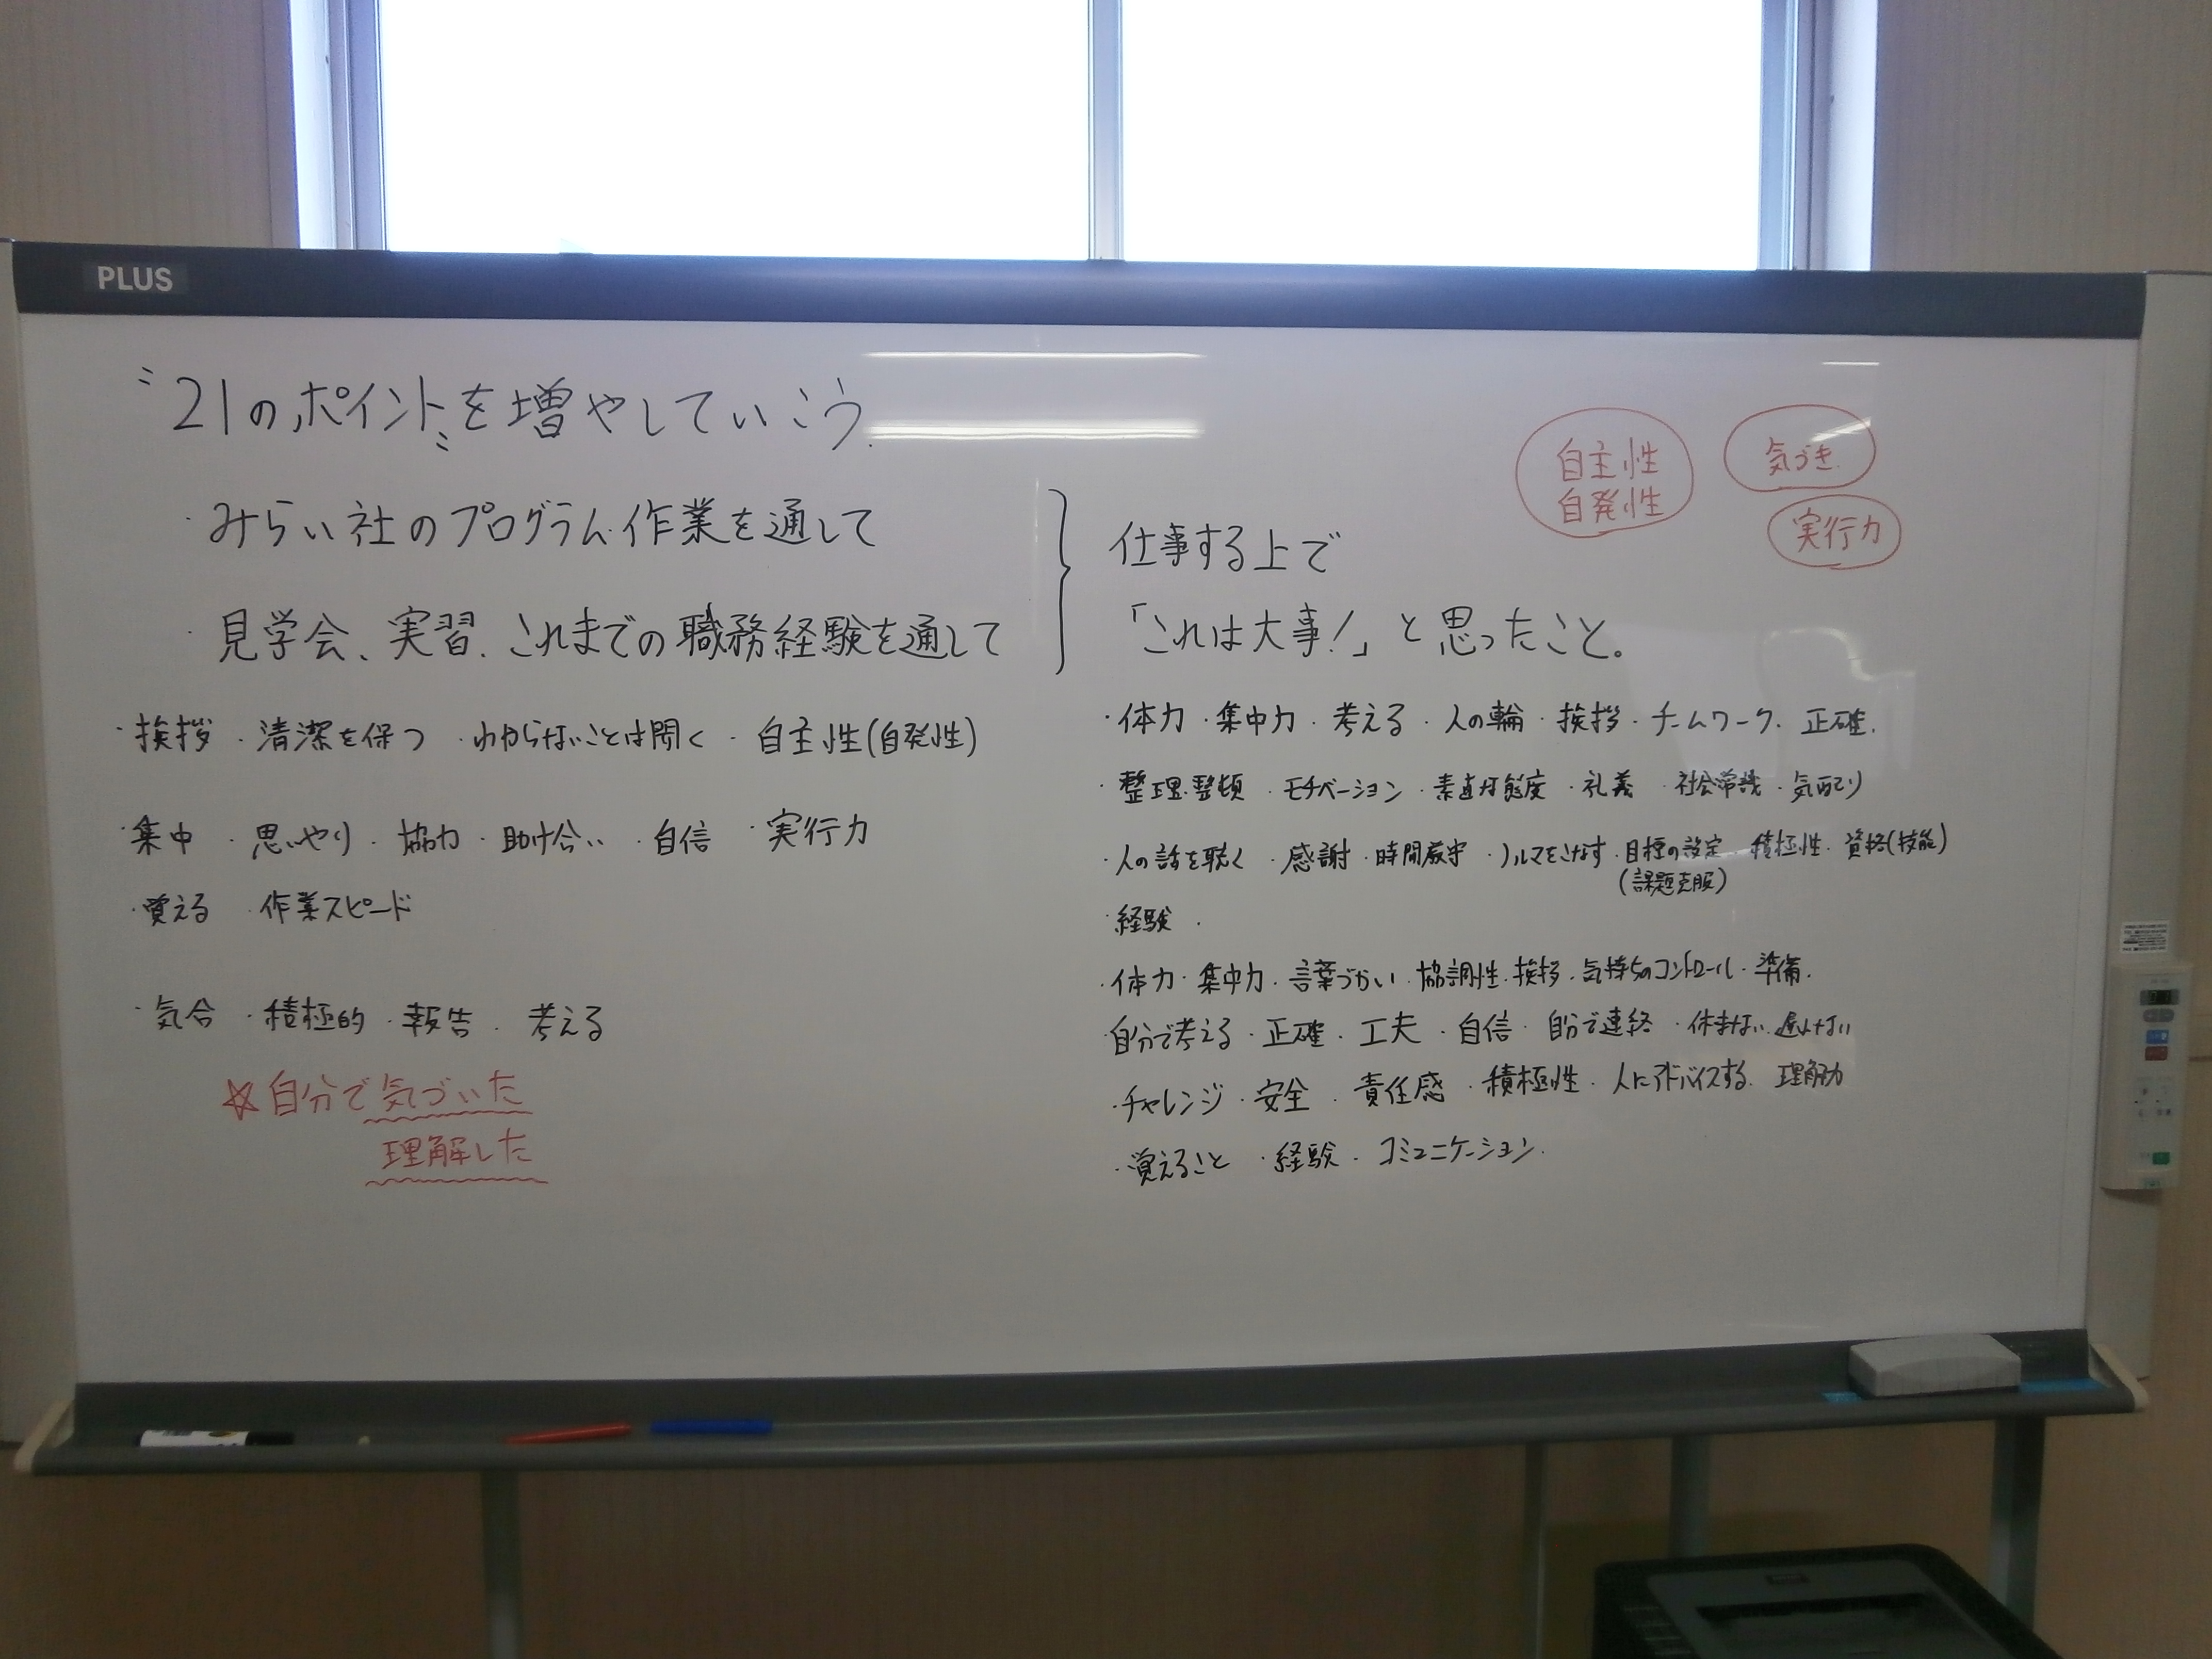 PLUS
〝21のポイント〟を増やしていこう.
・みらい社のプログラム・作業を通して
・見学会、実習、これまでの職務経験を通して
仕事する上で
「これは大事!」と思ったこと。
自主性
自発性
気づき
実行力
・挨拶 ・清潔を保つ ・わからないことは聞く ・自主性(自発性)
・集中 ・思いやり ・協力 ・助け合い ・自信 ・実行力
・覚える ・作業スピード
・気合 ・積極的 ・報告 ・考える
☆自分で気づいた
理解した
・体力 ・集中力 ・考える ・人の輪 ・挨拶 ・チームワーク ・正確.
・整理・整頓 ・モチベーション ・素直な態度 ・礼義 ・社会常識 ・気配り
・人の話を聴く ・感謝 ・時間厳守 ・ノルマをこなす ・目標の設定 ・積極性 ・資格(技能)
(課題克服)
・経験 ・
・体力 ・集中力 ・言葉づかい ・協調性 ・挨拶 ・気持ちのコントロール ・準備.
・自分で考える ・正確 ・工夫 ・自信 ・自分で連絡 ・休まない 遅れない
・チャレンジ ・安全 ・責任感 ・積極性 ・人にアドバイスする ・理解力
・覚えること ・経験 ・コミュニケーション.